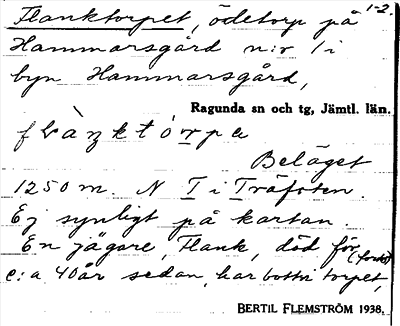 1-2.
Flanktorpet, ödetorp på
Hammarsgård n:r 1 i
byn Hammarsgård,
Ragunda sn och tg, Jämtl. län.
Beläget
1250 m. N I i Träfoten.
Ej synligt på kartan.
En jägare, Flank, död för
c:a 40 år sedan, har bott i torpet,
BERTIL FLEMSTRÖM 1938.